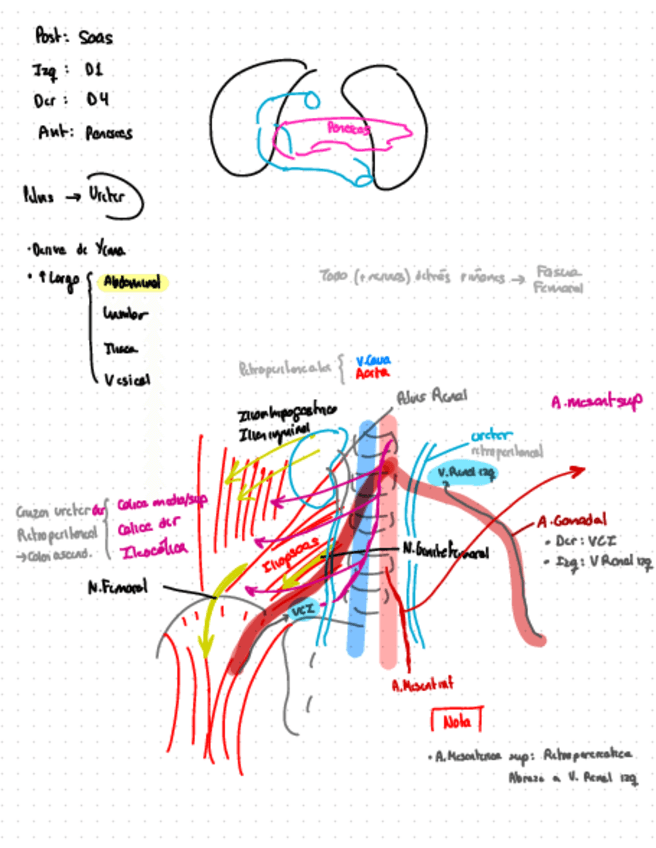 Post: Soas
Izq : D1
Dcr : D4
Ant: Pancreas
Pancreas
Pelvis → Ureter
· Deriva de
· ↑ Largo
Abdominal
Lumbar
Iliaca
Vesical
Todo (+ nervios) detrás riñones → Fascia
Femoral
Retroperitoneales
V. Cava
Aorta
Pelvis Renal
A. mesent sup
Iliohipogastrico
Ilioinguinal
ureter
retroperitoneal
V. Renal izq
Cruzan ureter der
Retroperitoneal
→ Colon ascend.
Colica media/sup
Colica der
Ileocólica
A. Gonadal
• Der: VCI
• Izq: V Renal izq
Iliopsoas
N. Genitofemoral
N. Femoral
VCI
A. Mesent inf
Nota
• A. Mesenterica sup: Retropancreatica
Abraza a V. Renal izq